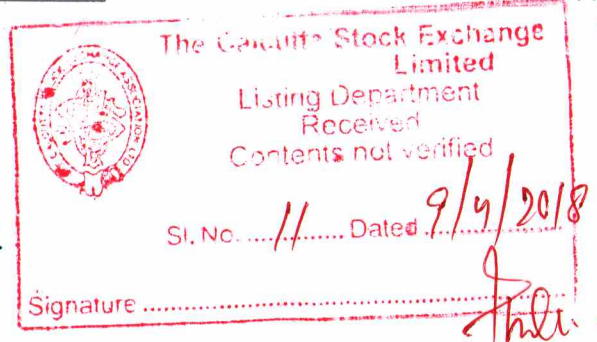 The Calcutta Stock Exchange
Limited
Listing Department
Received
Contents not verified
Sl. No. .....11......... Dated 9/4/2018
Signature ........................................................